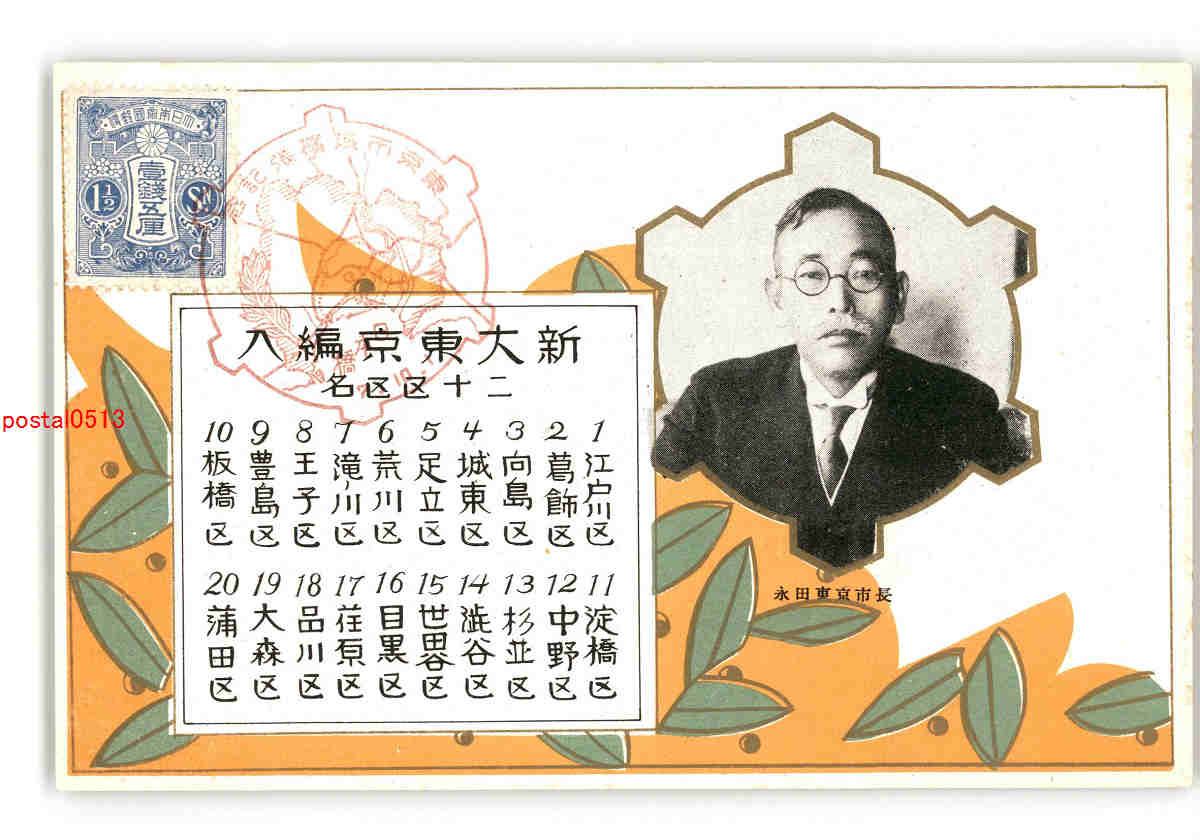 大日本帝國郵便
壹錢五厘
1½ Sn
東京市域擴張記念
新大東京編入
二十区区名
1 江戸川区
2 葛飾区
3 向島区
4 城東区
5 足立区
6 荒川区
7 滝ノ川区
8 王子区
9 豊島区
10 板橋区
11 淀橋区
12 中野区
13 杉並区
14 澁谷区
15 世田谷区
16 目黒区
17 荏原区
18 品川区
19 大森区
20 蒲田区
永田東京市長
postal0513